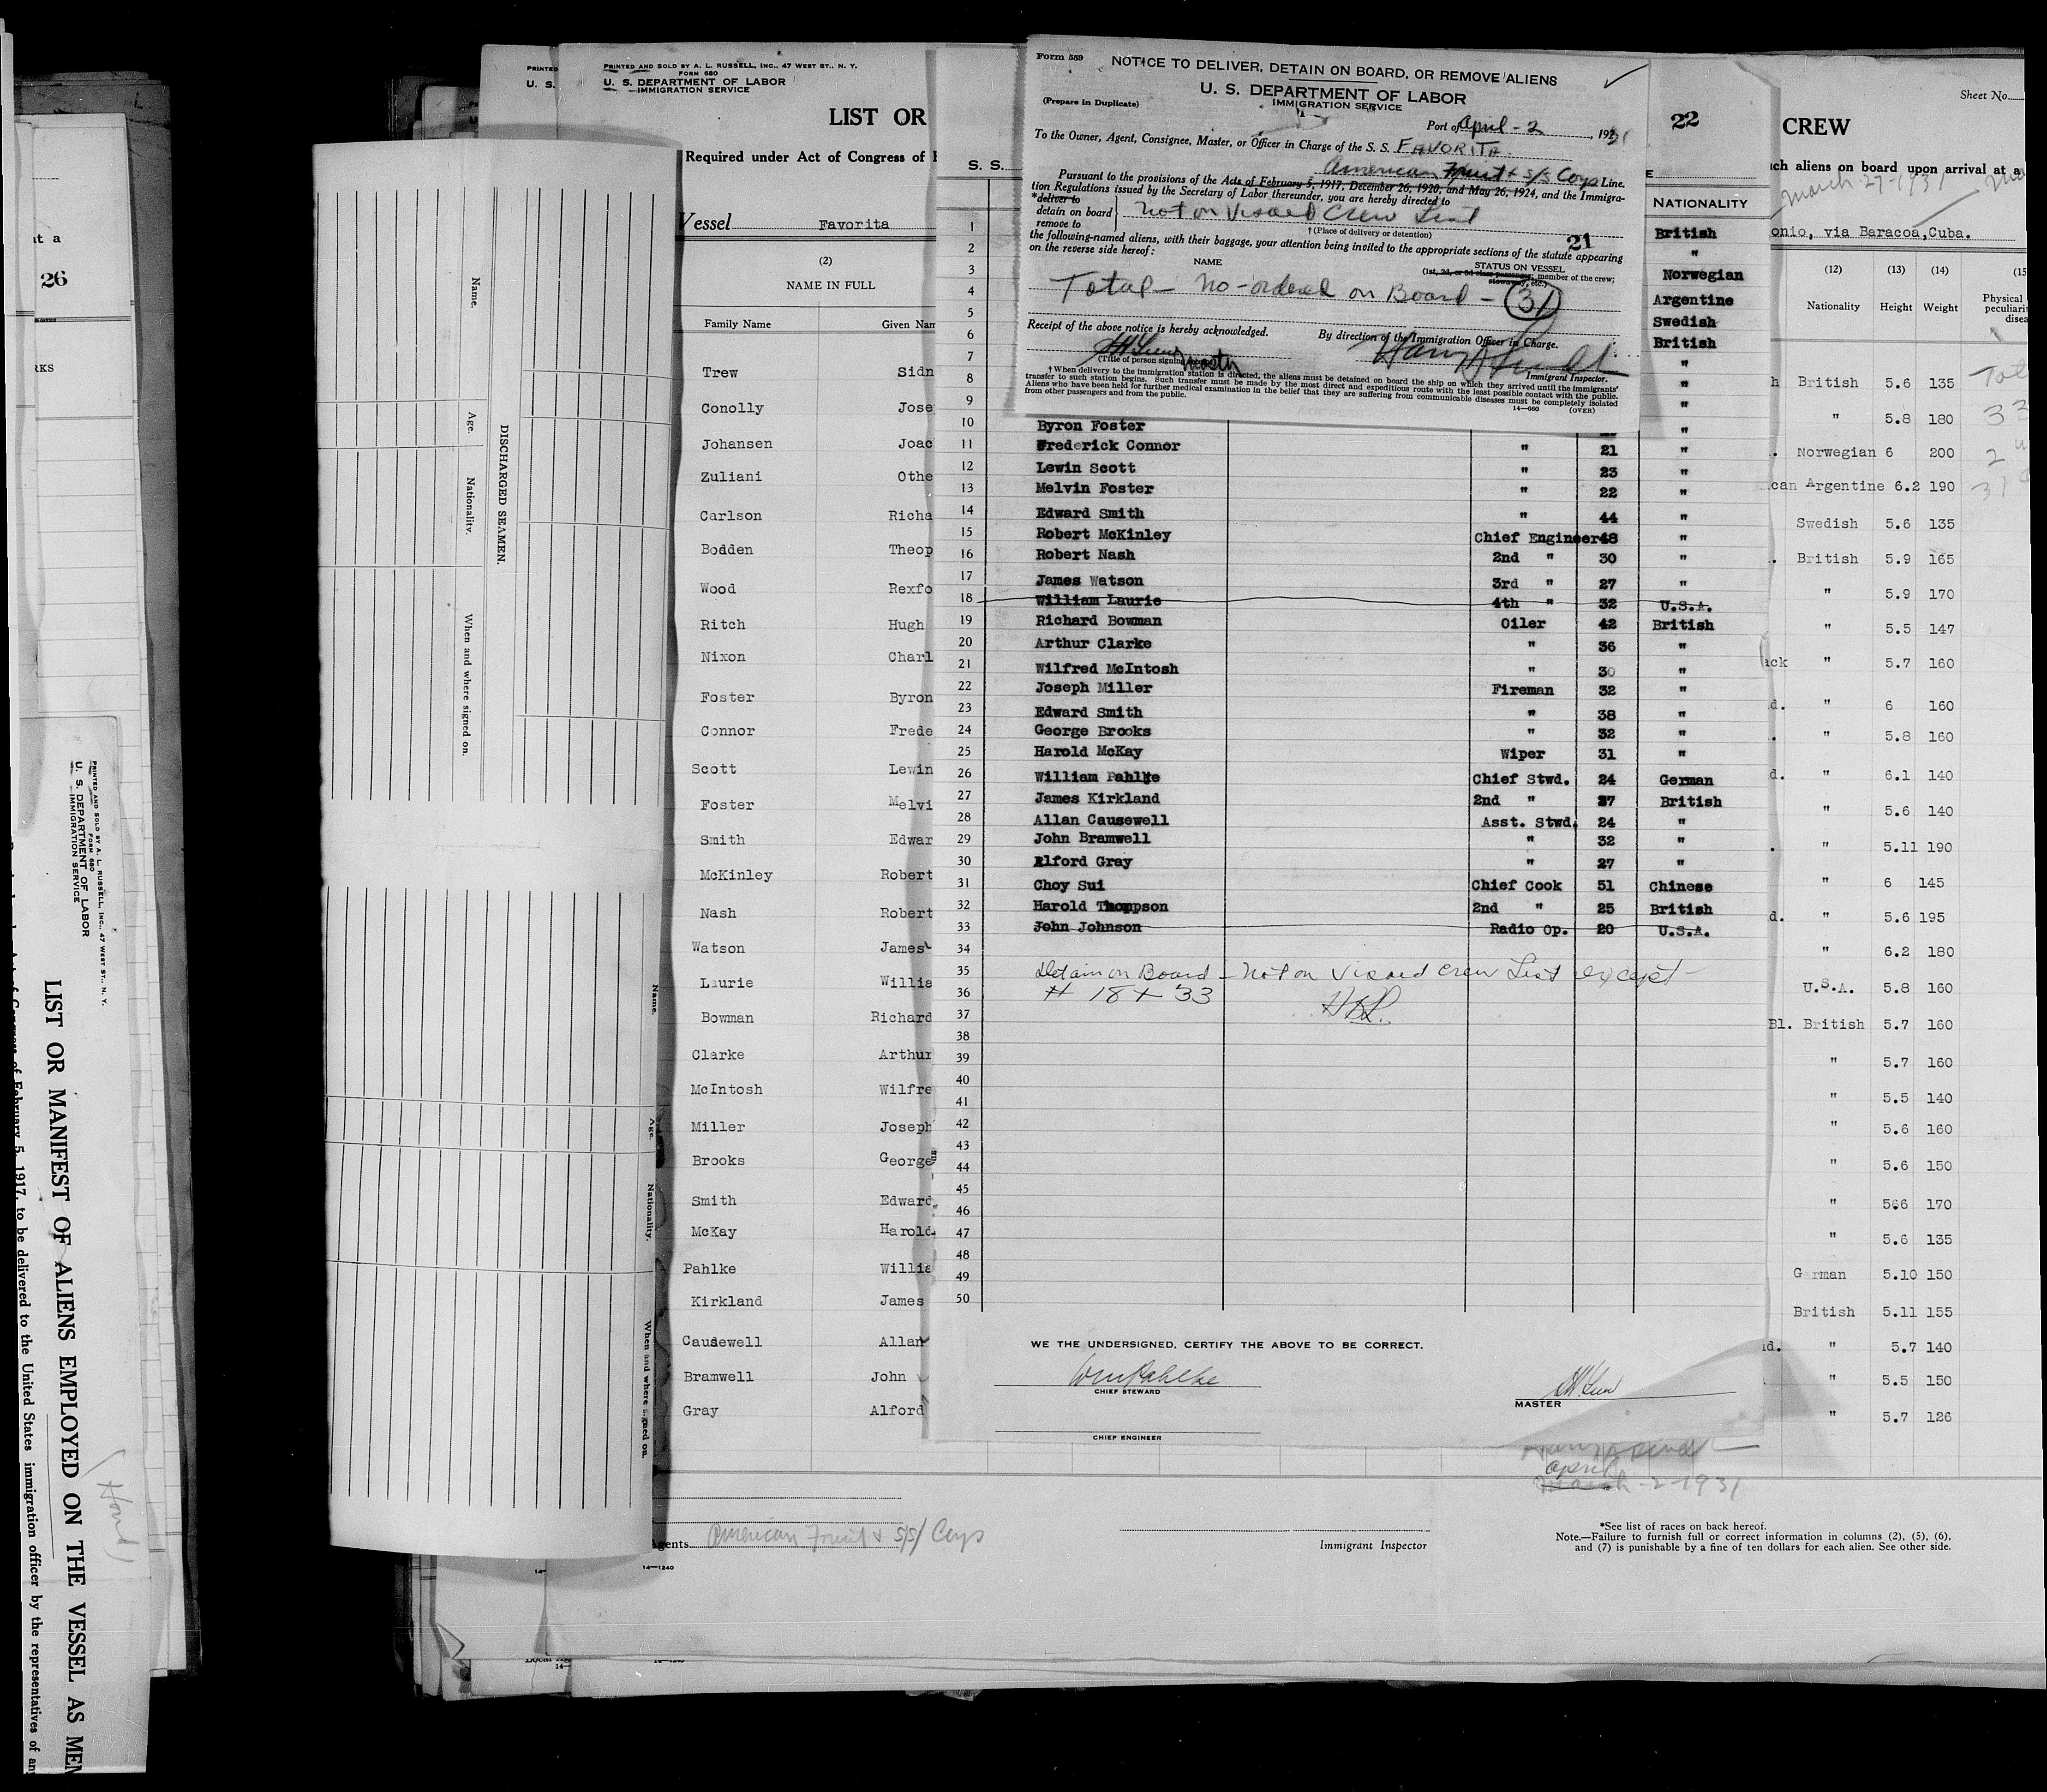 26
RKS
PRINTED AND SOLD BY A. L. RUSSELL, INC., 47 WEST ST., N. Y.
FORM 680
U. S. DEPARTMENT OF LABOR
IMMIGRATION SERVICE
LIST OR MANIFEST OF ALIENS EMPLOYED ON THE VESSEL AS MEM
of February 5, 1917, to be delivered to the United States immigration officer by the representatives of any
DISCHARGED SEAMEN.
Name.
Age.
Nationality.
When and where signed on.
Name.
Age.
Nationality.
When and where signed on.
PRINTED
U. S.
PRINTED AND SOLD BY A. L. RUSSELL, INC., 47 WEST ST., N. Y.
FORM 680
U. S. DEPARTMENT OF LABOR
IMMIGRATION SERVICE
LIST OR
Required under Act of Congress of F
Vessel Favorita
(2)
NAME IN FULL
Family Name Given Nam
Trew Sidn
Conolly Jose
Johansen Joac
Zuliani Othe
Carlson Richa
Bodden Theop
Wood Rexfo
Ritch Hugh
Nixon Charl
Foster Byron
Connor Frede
Scott Lewin
Foster Melvi
Smith Edwar
McKinley Robert
Nash Robert
Watson James
Laurie Willia
Bowman Richard
Clarke Arthur
McIntosh Wilfre
Miller Joseph
Brooks George
Smith Edward
McKay Harold
Pahlke Willia
Kirkland James
Causewell Allan
Bramwell John
Gray Alford
Agents American Fruit & S/S/ Corps
14—1240
Form 559
NOTICE TO DELIVER, DETAIN ON BOARD, OR REMOVE ALIENS
U. S. DEPARTMENT OF LABOR
IMMIGRATION SERVICE
(Prepare in Duplicate)
Port of April - 2, 1931
To the Owner, Agent, Consignee, Master, or Officer in Charge of the S. S. FAVORITA
American Fruit & S/S Corps Line.
Pursuant to the provisions of the Acts of February 5, 1917, December 26, 1920, and May 26, 1924, and the Immigra-
tion Regulations issued by the Secretary of Labor thereunder, you are hereby directed to
*deliver to
detain on board } Not on Visaed Crew List
remove to
† (Place of delivery or detention)
the following-named aliens, with their baggage, your attention being invited to the appropriate sections of the statute appearing
on the reverse side hereof:
21
NAME
STATUS ON VESSEL
(1st, 2d, or 3d class passenger, member of the crew;
stowaway, etc.)
Total - No - ordered on Board - 31
Receipt of the above notice is hereby acknowledged.
By direction of the Immigration Officer in Charge.
master
(Title of person signing
Immigrant Inspector.
† When delivery to the immigration station is directed, the aliens must be detained on board the ship on which they arrived until the immigrants'
transfer to such station begins. Such transfer must be made by the most direct and expeditious route with the least possible contact with the public.
Aliens who have been held for further medical examination in the belief that they are suffering from communicable diseases must be completely isolated
from other passengers and from the public.
14—660 (OVER)
22
S. S.
E
NATIONALITY
1 British
2 "
3 Norwegian
4 Argentine
5 Swedish
6 British
7 "
8 "
9 "
10 Byron Foster "
11 Frederick Connor " 21 "
12 Lewin Scott " 23 "
13 Melvin Foster " 22 "
14 Edward Smith " 44 "
15 Robert McKinley Chief Engineer 48 "
16 Robert Nash 2nd " 30 "
17 James Watson 3rd " 27 "
18 William Laurie 4th " 32 U.S.A.
19 Richard Bowman Oiler 42 British
20 Arthur Clarke " 36 "
21 Wilfred McIntosh " 30 "
22 Joseph Miller Fireman 32 "
23 Edward Smith " 38 "
24 George Brooks " 32 "
25 Harold McKay Wiper 31 "
26 William Pahlke Chief Stwd. 24 German
27 James Kirkland 2nd " 27 British
28 Allan Causewell Asst. Stwd. 24 "
29 John Bramwell " 32 "
30 Alford Gray " 27 "
31 Choy Sui Chief Cook 51 Chinese
32 Harold Thompson 2nd " 25 British
33 John Johnson Radio Op. 20 U.S.A.
34
35 Detain on Board - Not on Visaed Crew List except -
36 # 18 + 33 HBL.
37
38
39
40
41
42
43
44
45
46
47
48
49
50
WE THE UNDERSIGNED, CERTIFY THE ABOVE TO BE CORRECT.
Wm Pahlke
CHIEF STEWARD
MASTER
CHIEF ENGINEER
April
March - 2 - 1931
Immigrant Inspector
*See list of races on back hereof.
Note.—Failure to furnish full or correct information in columns (2), (5), (6),
and (7) is punishable by a fine of ten dollars for each alien. See other side.
Sheet No.
CREW
uch aliens on board upon arrival at a
March - 27 - 1931
onio, via Baracoa, Cuba.
(12) (13) (14) (15
Nationality Height Weight Physical
peculiari
disea
h British 5.6 135
" 5.8 180
Norwegian 6 200
can Argentine 6.2 190
Swedish 5.6 135
British 5.9 165
" 5.9 170
" 5.5 147
ack " 5.7 160
d. " 6 160
" 5.8 160
d. " 6.1 140
" 5.6 140
" 5.11 190
" 6 145
d. " 5.6 195
" 6.2 180
U.S.A. 5.8 160
Bl. British 5.7 160
" 5.7 160
" 5.5 140
" 5.6 160
" 5.6 150
" 566 170
" 5.6 135
German 5.10 150
British 5.11 155
d. " 5.7 140
" 5.5 150
" 5.7 126